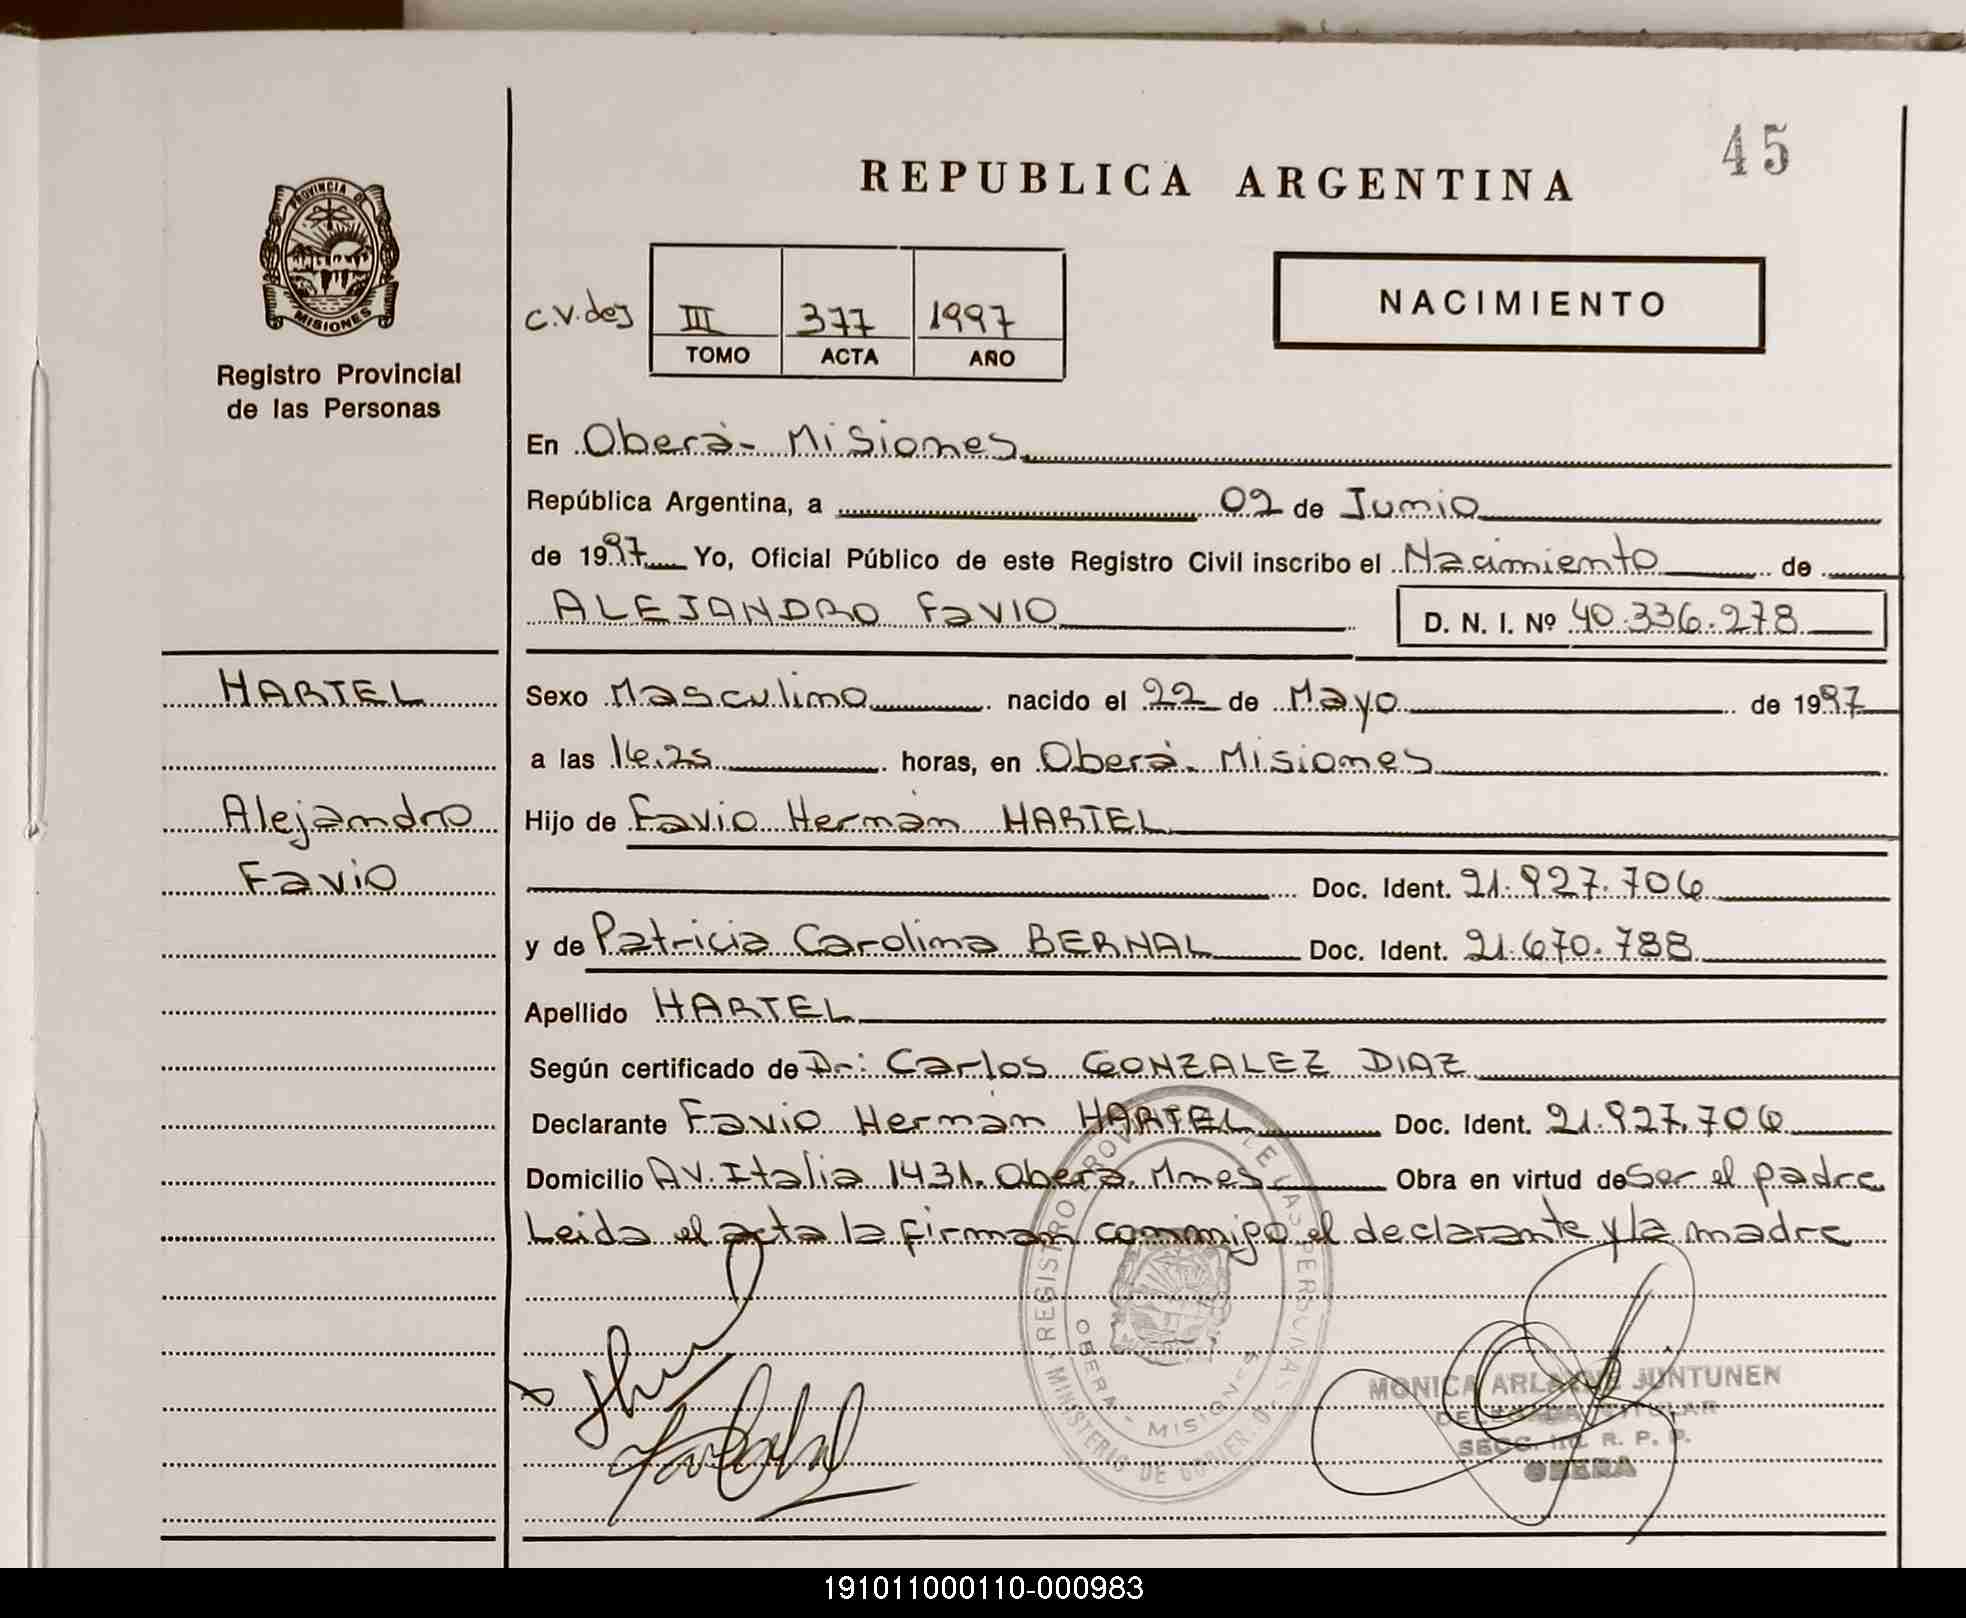 45
REPUBLICA ARGENTINA
PROVINCIA DE
MISIONES
Registro Provincial
de las Personas
C.V. des
III 377 1997
TOMO ACTA AÑO
NACIMIENTO
En Oberá - Misiones
República Argentina, a 02 de Junio
de 1997 Yo, Oficial Público de este Registro Civil inscribo el Nacimiento de
ALEJANDRO Favio D. N. I. Nº 40.336.278
HARTEL
Alejandro
Favio
Sexo Masculino nacido el 22 de Mayo de 1997
a las 16.25 horas, en Oberá. Misiones
Hijo de Favio Hernán HARTEL
Doc. Ident. 21.927.706
y de Patricia Carolina BERNAL Doc. Ident. 21.670.788
Apellido HARTEL
Según certificado de Dr: Carlos GONZALEZ DIAZ
Declarante Favio Hernán HARTEL Doc. Ident. 21.927.706
Domicilio AV. Italia 1431. Oberá. Mnes Obra en virtud de Ser el padre
Leida el acta la firman conmigo el declarante y la madre
REGISTRO PROV DE LAS PERSONAS
OBERA - MISIONES
MINISTERIO DE GOBIERNO
MONICA JUNTUNEN
DELEGADA TITULAR
SECC. R. P. P.
OBERA
191011000110-000983